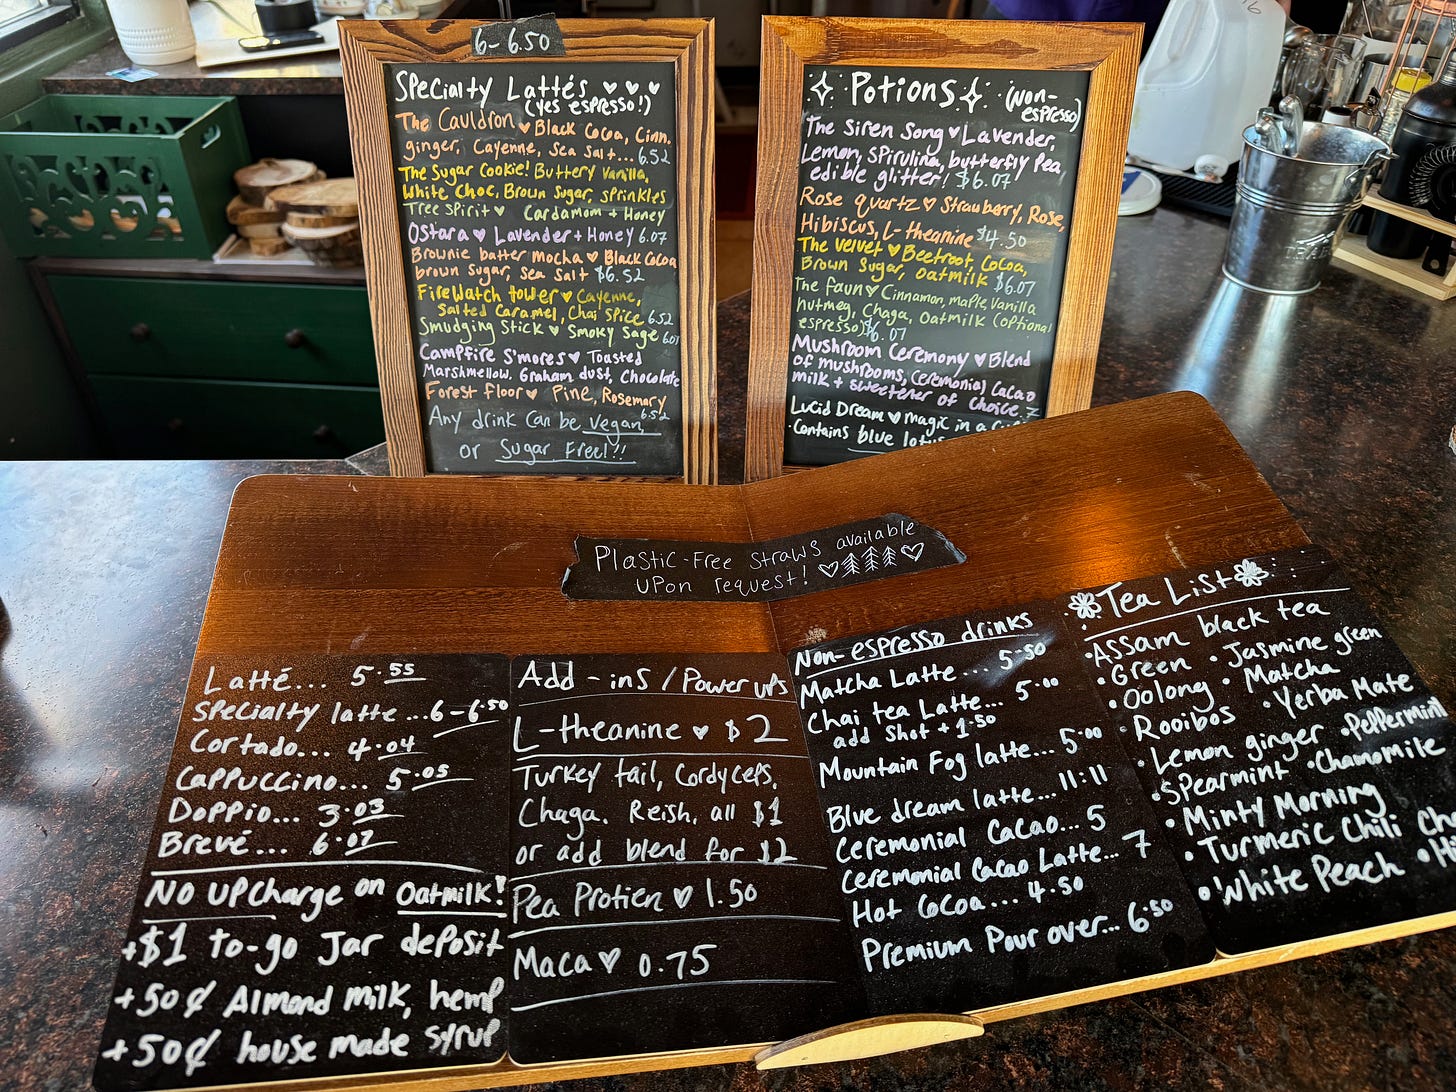 6-6.50
Specialty Lattés ♥ ♥ ♥
(yes espresso!)
The Cauldron ♥ Black Cocoa, Cinn.
ginger, Cayenne, Sea Salt... 6.52
The Sugar Cookie! Buttery Vanilla,
White Choc, Brown Sugar, sprinkles
Tree Spirit ♥ Cardamom + Honey
Ostara ♥ Lavender + Honey 6.07
Brownie batter mocha ♥ Black Cocoa
brown Sugar, Sea Salt $6.52
Fire Watch tower ♥ Cayenne,
Salted Caramel, Chai Spice 6.52
Smudging Stick ♥ Smoky Sage 6.07
Campfire S'mores ♥ Toasted
Marshmellow. Graham dust, Chocolate
Forest floor ♥ Pine, Rosemary
6.52
Any drink can be vegan,
or Sugar Free!!
Potions (non-
espresso)
The Siren Song ♥ Lavender,
Lemon, Spirulina, butterfly Pea,
edible glitter! $6.07
Rose quartz ♥ Strawberry, Rose,
Hibiscus, L-theanine $4.50
The Velvet ♥ Beetroot, Cocoa,
Brown Sugar, oatmilk $6.07
The Faun ♥ Cinnamon, maple, Vanilla
nutmeg, Chaga, Oatmilk (optional
espresso) $6.07
Mushroom Ceremony ♥ Blend
of mushrooms, Ceremonial Cacao
milk + sweetener of choice. 7
Lucid Dream ♥ magic in a
Contains blue
Plastic-Free Straws available
upon request!
Latté... 5.55
Specialty latte... 6-6.50
Cortado... 4.04
Cappuccino... 5.05
Doppio... 3.03
Brevé... 6.07
No upcharge on Oatmilk!
+$1 to-go Jar deposit
+50¢ Almond milk, hemp
+50¢ house made syrup
Add-ins / Power ups
L-theanine ♥ $2
Turkey tail, Cordyceps,
Chaga. Reishi, all $1
or add blend for $2
Pea Protien ♥ 1.50
Maca ♥ 0.75
Non-espresso drinks
Matcha Latte... 5.50
Chai tea Latte... 5.00
add Shot + 1.50
Mountain Fog latte... 5.00
Blue dream latte... 11:11
Ceremonial Cacao... 5
Ceremonial Cacao Latte... 7
Hot Cocoa... 4.50
Premium Pour over... 6.50
Tea List
•Assam black tea
•Green •Jasmine green
•Oolong •Matcha
•Rooibos •Yerba Mate
•Lemon ginger •Peppermint
•Spearmint •Chamomile
•Minty Morning
•Turmeric Chili
•White Peach